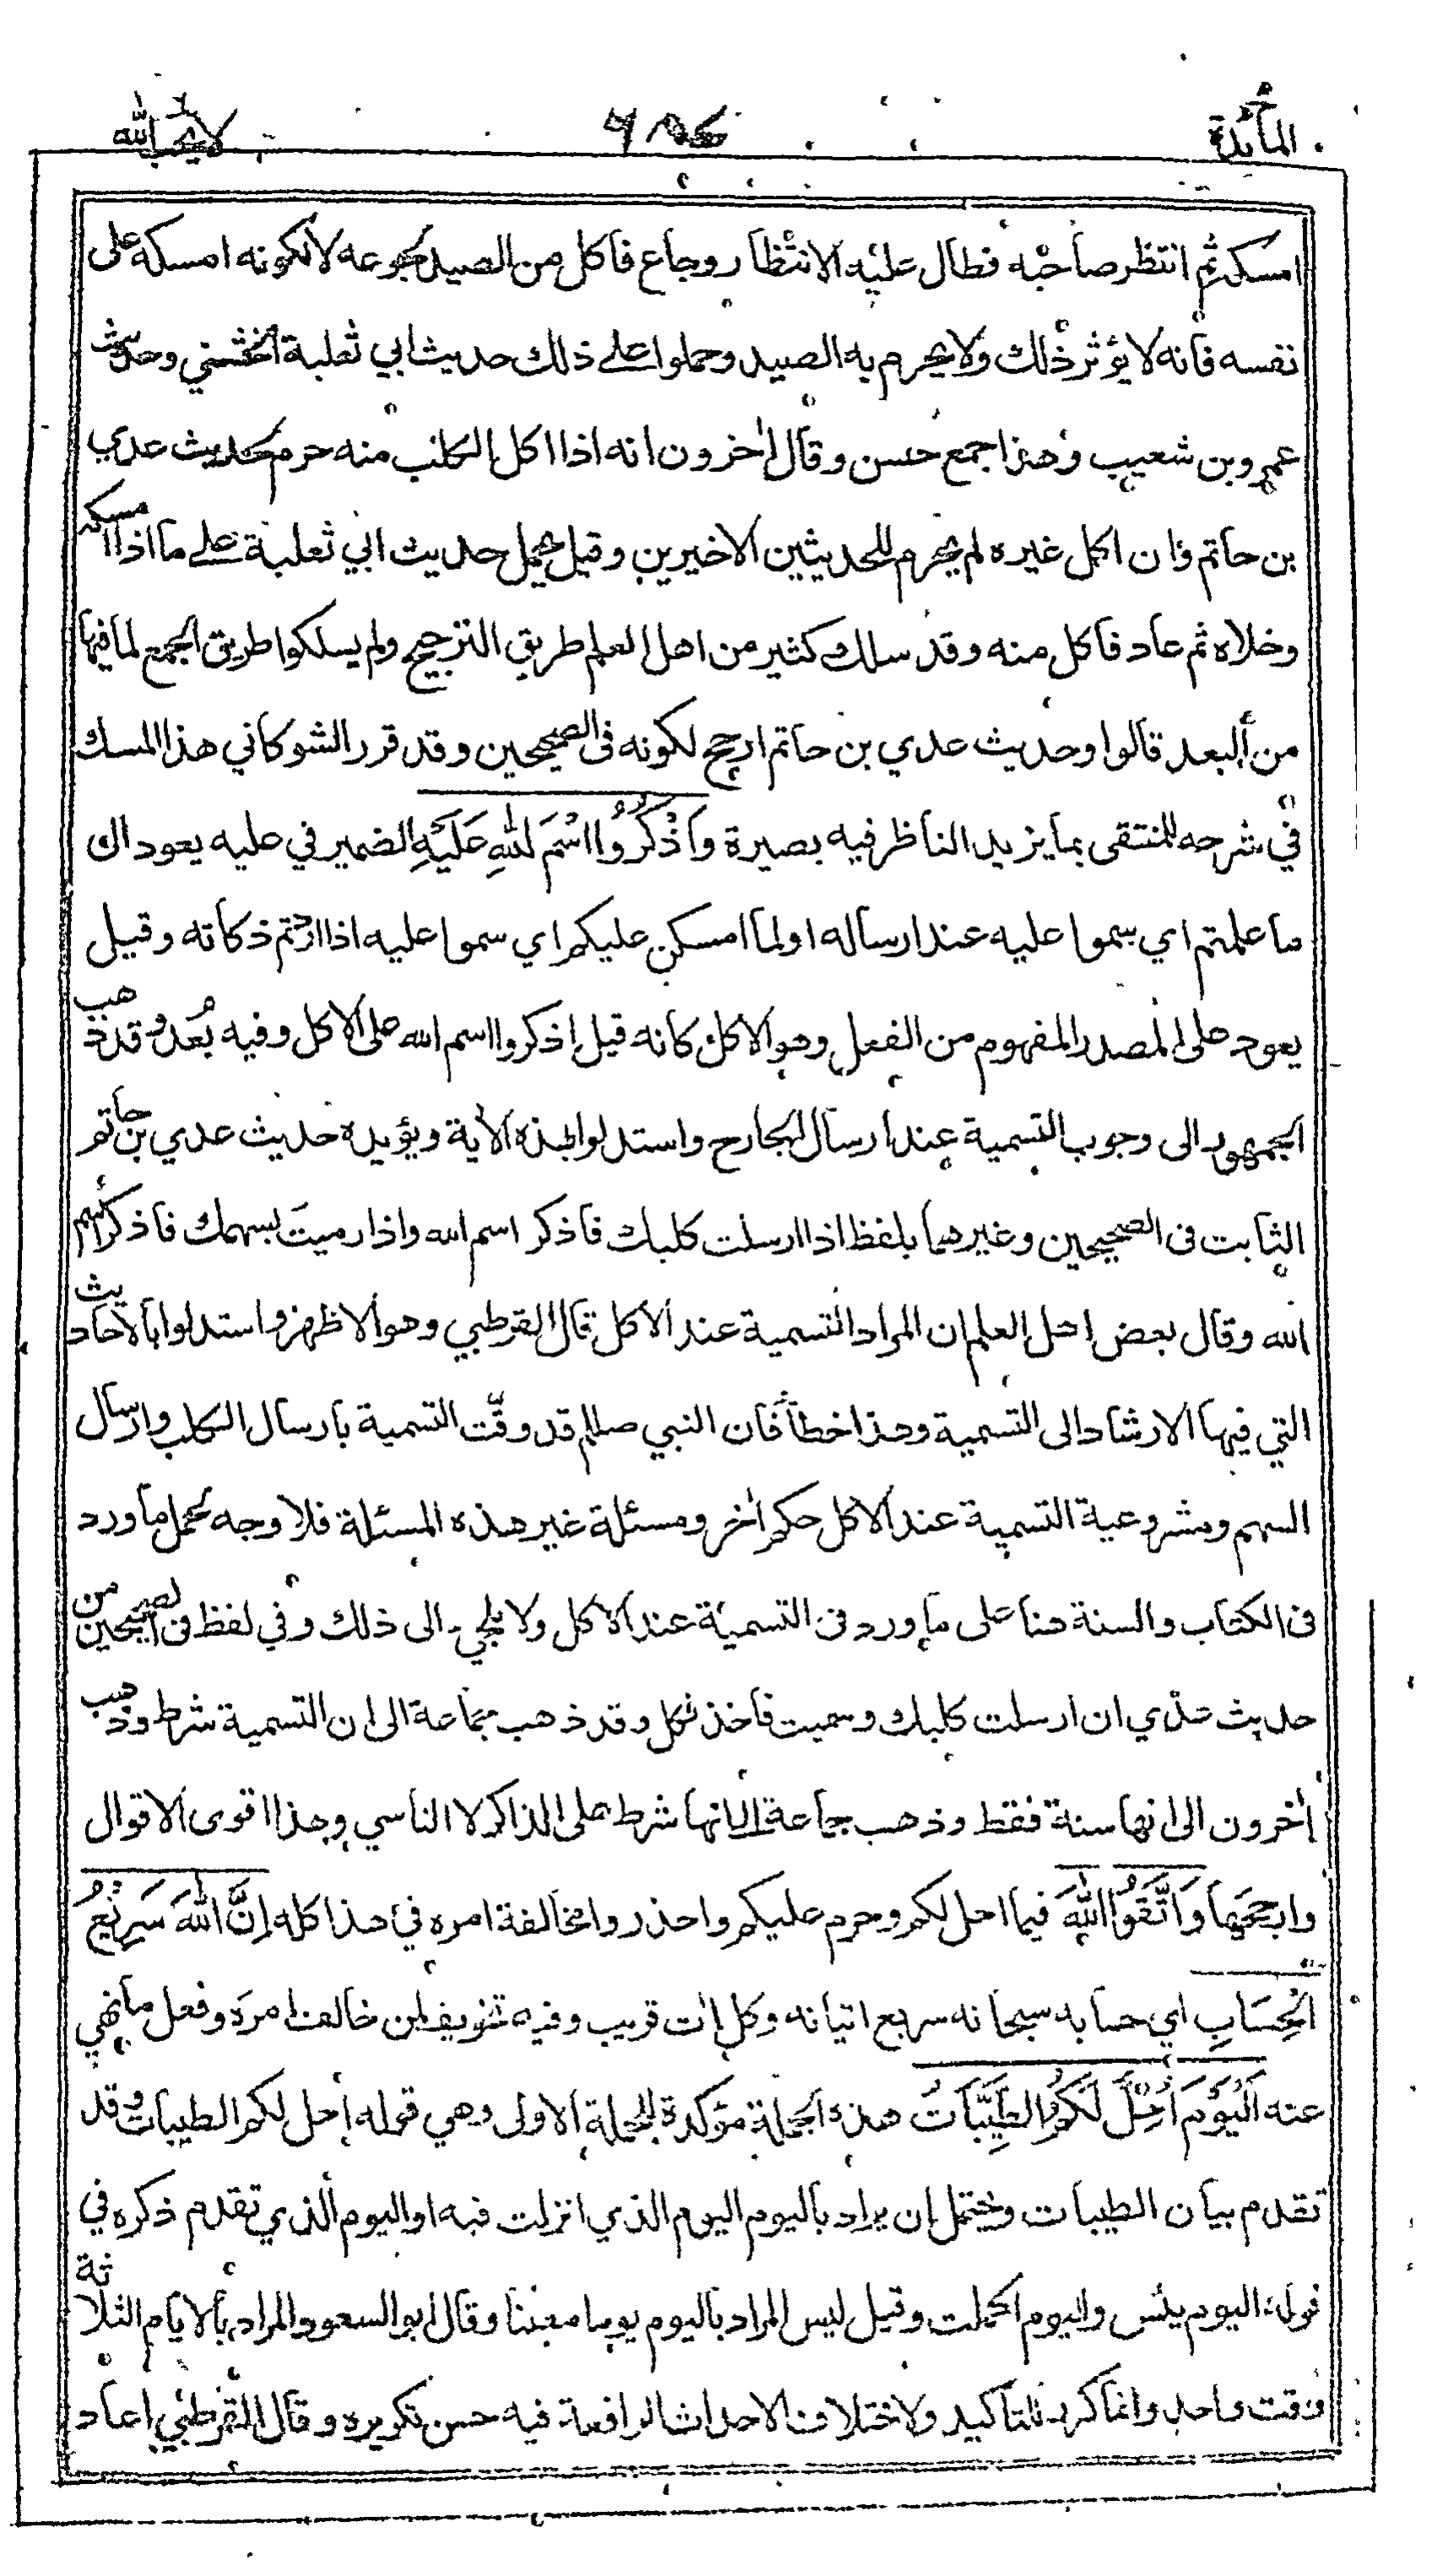 المائدة
لا يحب الله
امسك ثم انتظر صاحبه فطال عليه الانتظار وجاع فاكل من الصيد لجوعه لا لكونه امسكه على
نفسه فانه لا يؤثر ذلك ولا يحرم به الصيد وحملوا على ذلك حديث ابي ثعلبة الخشني وحديث
عمرو بن شعيب وهذا جمع حسن وقال اخرون انه اذا اكل الكلب منه حرم لحديث عدي
بن حاتم وان اكل غيره لم يحرم للحديثين الاخيرين وقيل يحمل حديث ابي ثعلبة على ما اذا امسكه
وخلاه ثم عاد فاكل منه وقد سلك كثير من اهل العلم طريق الترجيح ولم يسلكوا طريق الجمع لما فيها
من البعد قالوا وحديث عدي بن حاتم ارجح لكونه في الصحيحين وقد قرر الشوكاني هذا المسك
في شرحه للمنتقى بما يزيد الناظر فيه بصيرة وَاذْكُرُوا اسْمَ اللهِ عَلَيْهِ الضمير في عليه يعود الى
ما علمتم اي سموا عليه عند ارساله او لما امسكن عليكم اي سموا عليه اذا اردتم ذكاته وقيل
يعود على المصدر المفهوم من الفعل وهو الاكل كانه قيل اذكروا اسم الله على الاكل وفيه بُعد وقد ذهب
الجمهور الى وجوب التسمية عند ارسال الجارح واستدلوا بهذه الاية ويؤيده حديث عدي بن حاتم
الثابت في الصحيحين وغيرهما بلفظ اذا ارسلت كلبك فاذكر اسم الله واذا رميت بسهمك فاذكر اسم
الله وقال بعض اهل العلم ان المراد التسمية عند الاكل قال القرطبي وهو الاظهر واستدلوا بالاحاديث
التي فيها الارشاد الى التسمية وهذا خطأ فان النبي صللم قد وقّت التسمية بارسال الكلب وارسال
السهم ومشروعية التسمية عند الاكل حكم اخر ومسئلة غير هذه المسئلة فلا وجه لحمل ما ورد
في الكتاب والسنة هنا على ما ورد في التسمية عند الاكل ولا ملجي الى ذلك وفي لفظ في الصحيحين من
حديث عدي ان ارسلت كلبك وسميت فاخذ فكل وقد ذهب جماعة الى ان التسمية شرط وذهب
اخرون الى انها سنة فقط وذهب جماعة الى انها شرط على الذاكر لا الناسي وهذا اقوى الاقوال
وارجحها وَاتَّقُوا اللهَ فيما احل لكم وحرم عليكم واحذروا مخالفة امره في هذا كله إِنَّ اللهَ سَرِيْعُ
الْحِسَابِ اي حسابه سبحانه سريع اتيانه وكل ات قريب وفيه تخويف لمن خالف امره وفعل ما نهي
عنه اَلْيَوْمَ أُحِلَّ لَكُمُ الطَّيِّبَاتُ هذه الجملة مؤكدة للجملة الاولى وهي قوله أحل لكم الطيبات وقد
تقدم بيان الطيبات ويحتمل ان يراد باليوم اليوم الذي انزلت فيه او اليوم الذي تقدم ذكره في
قوله اليوم يئس واليوم اكملت وقيل ليس المراد باليوم يوما معينا وقال ابو السعود المراد بالايام الثلاثة
وقت واحد وانما كرر للتاكيد ولاختلاف الاحداث الواقعة فيه حسن تكريره وقال القرطبي اعاد